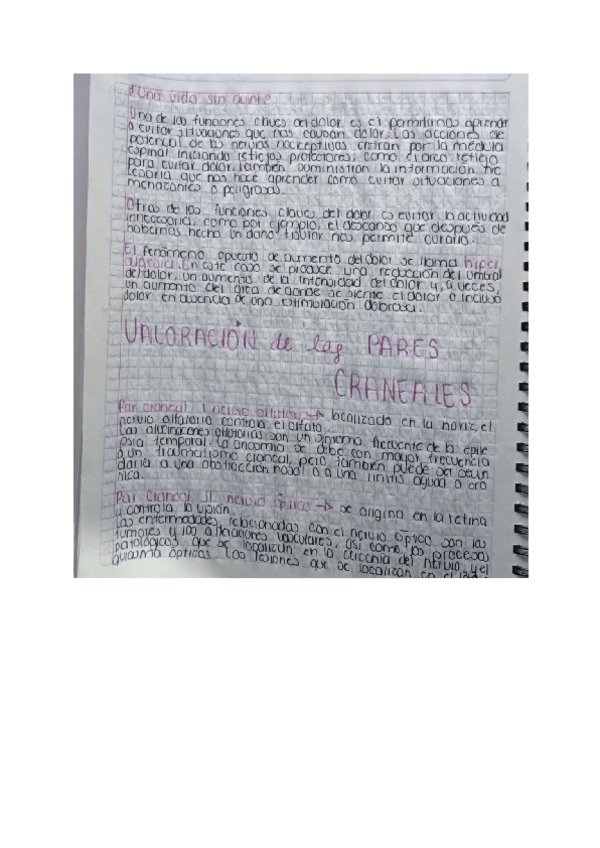 ¿Una vida sin dolor?
Una de las funciones claves del dolor es el permitirnos aprender
a evitar situaciones que nos causan dolor. Las acciones de
potencial de los nervios nociceptivos entran por la médula
espinal iniciando reflejos protectores, como el arco reflejo
para evitar dolor. También suministran la información ne
cesaria que nos hace aprender como evitar situaciones a
menazantes o peligrosas.
Otras de las funciones claves del dolor es evitar la actividad
innecesaria, como por ejemplo, el descanso que después de
habernos hecho un daño tisular nos permite curarlo.
El fenómeno opuesto de aumento del dolor se llama hiper
algesia. En este caso se produce una reducción del umbral
del dolor, un aumento de la intensidad del dolor y, a veces,
un aumento del área de donde se siente el dolor o incluso
dolor en ausencia de una estimulación dolorosa.
VALORACIÓN de los PARES
CRANEALES
Par craneal I nervio olfatorio → localizado en la nariz, el
nervio olfatorio controla el olfato.
Las alucinaciones olfatorias son un síntoma frecuente de la epile
psia temporal. La anosmia se debe con mayor frecuencia
a un traumatismo craneal, pero también puede ser secun
daria a una obstrucción nasal o a una rinitis aguda o cró
nica.
Par craneal II nervio óptico → se origina en la retina
y controla la visión.
Las enfermedades relacionadas con el nervio óptico son los
tumores y las alteraciones vasculares, así como los procesos
patológicos que se localizan en la cercanía del nervio y el
quiasma ópticos. Las lesiones que se localizan en el